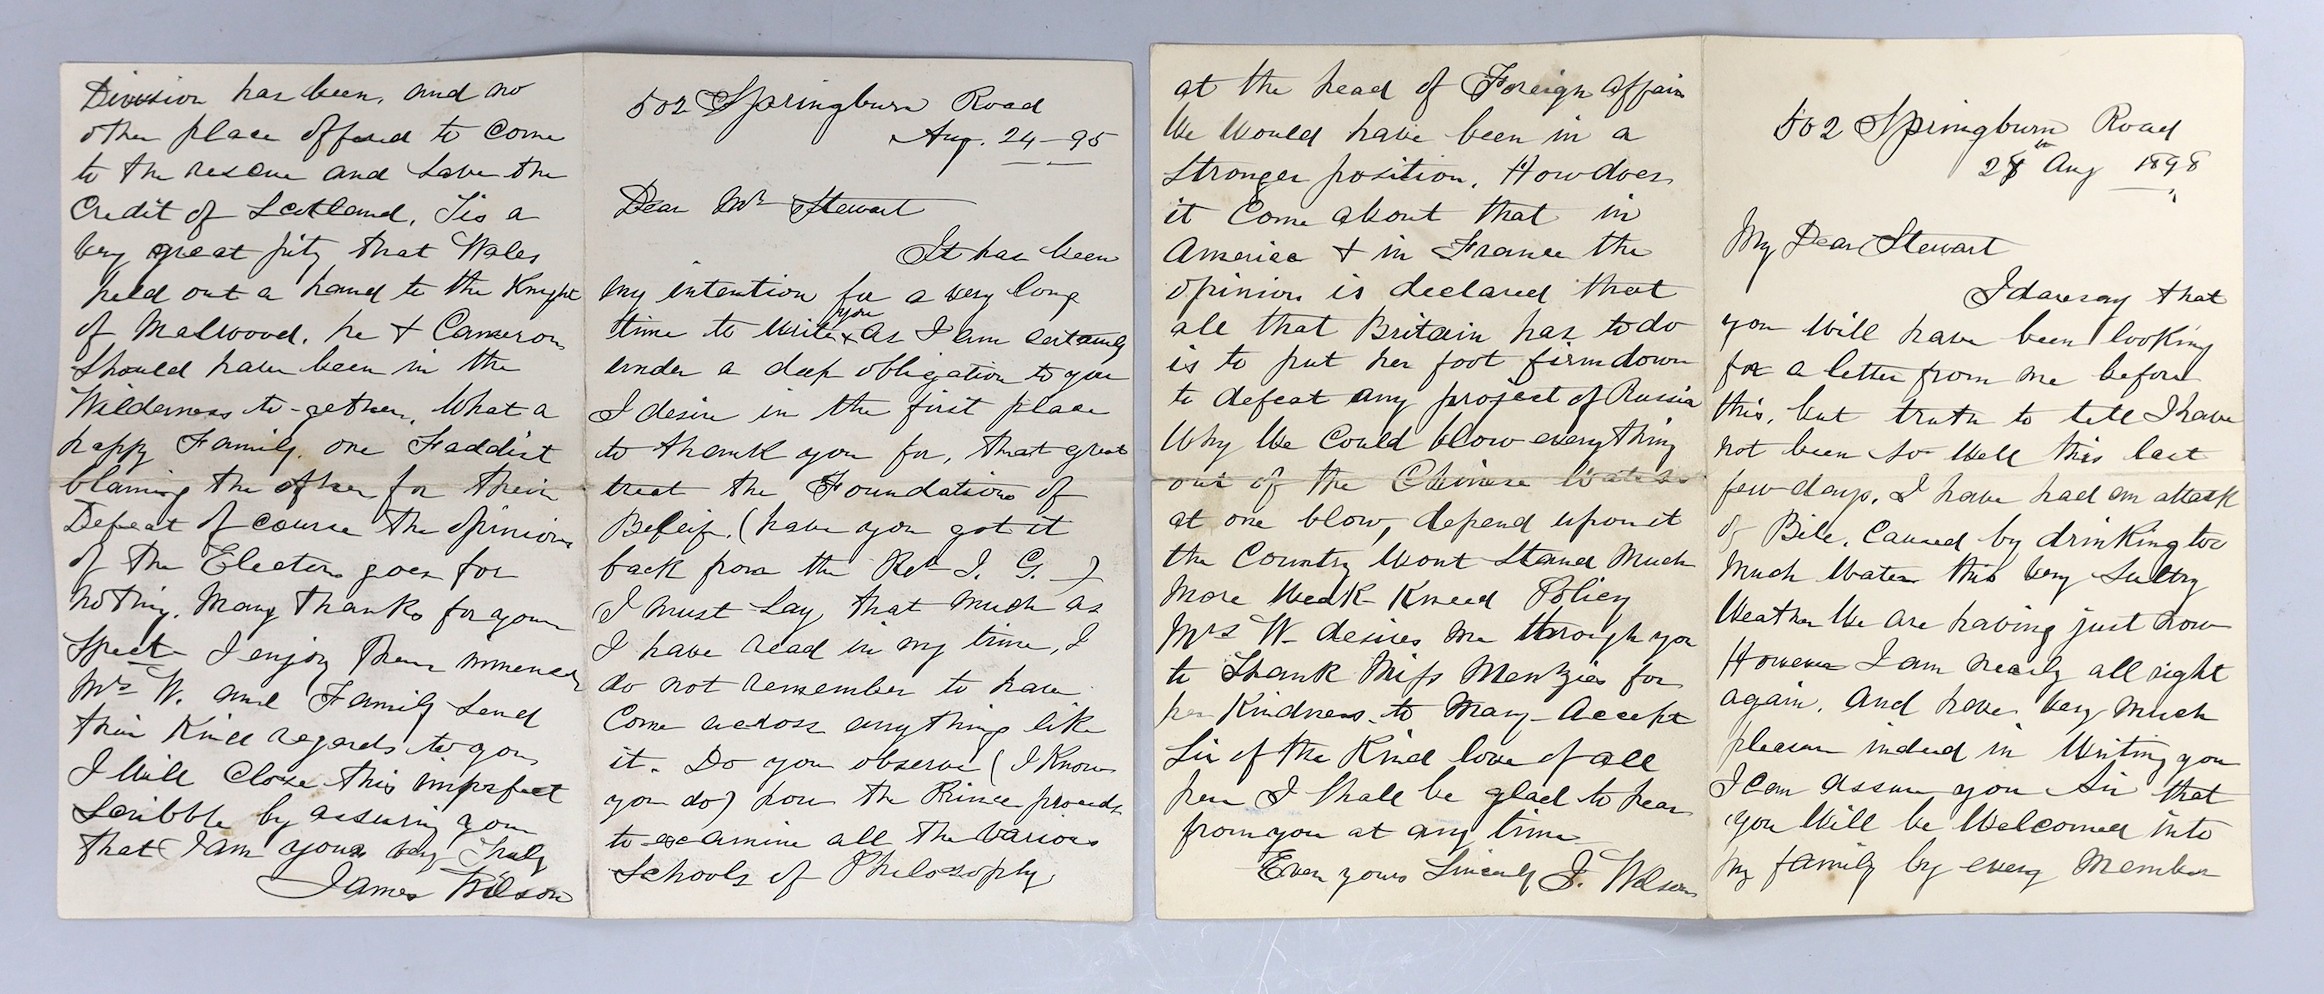 Division has been, and no
other place offered to come
to the rescue and save the
Credit of Scotland. Tis a
very great pity that Wales
held out a hand to the Knight
of Malwood. he & Cameron
should have been in the
Wilderness to-gether. What a
happy Family. one Faddist
blaming the other for their
Defeat of course the opinion
of the Electors goes for
nothing. Many thanks for your
Spect I enjoy them immensely
Mrs W. and Family send
their Kind regards to you
I will close this imperfect
Scribble by assuring you
that I am yours very Truly
James Wilson
502 Springburn Road
Aug. 24-95
Dear Mr Stewart
It has been
my intention for a very long
time to write you & as I am certainly
under a deep obligation to you
I desire in the first place
to thank you for, that great
treat the Foundations of
Beleif. (have you got it
back from the Rev J. G. )
I must say that much as
I have read in my time, I
do not remember to have
Come across anything like
it. Do you observe (I Know
you do) how the Prince proceeds
to examine all the various
Schools of Philosophy
at the head of Foreign affairs
We would have been in a
stronger position. How does
it come about that in
America & in France the
opinion is declared that
all that Britain has to do
is to put her foot firm down
to defeat any project of Russia
Why we could blow everything
out of the Chinese Waters
at one blow, depend upon it
the Country wont stand much
more Weak Kneed Policy
Mrs W- desires me through you
to thank Miss Menzies for
her Kindness to Mary- Accept
Sir of the Kind love of all
here I shall be glad to hear
from you at any time
Ever yours Sincerely J. Wilson
502 Springburn Road
28th Aug 1898
My Dear Stewart
I daresay that
you will have been looking
for a letter from me before
this, but truth to tell I have
not been so well this last
few days. I have had an attack
of Bile. Caused by drinking too
much Water this very Sultry
Weather We are having just now
However I am nearly all right
again. And have very much
pleasure indeed in Writing you
I can assure you Sir that
you will be Welcomed into
my family by every Member